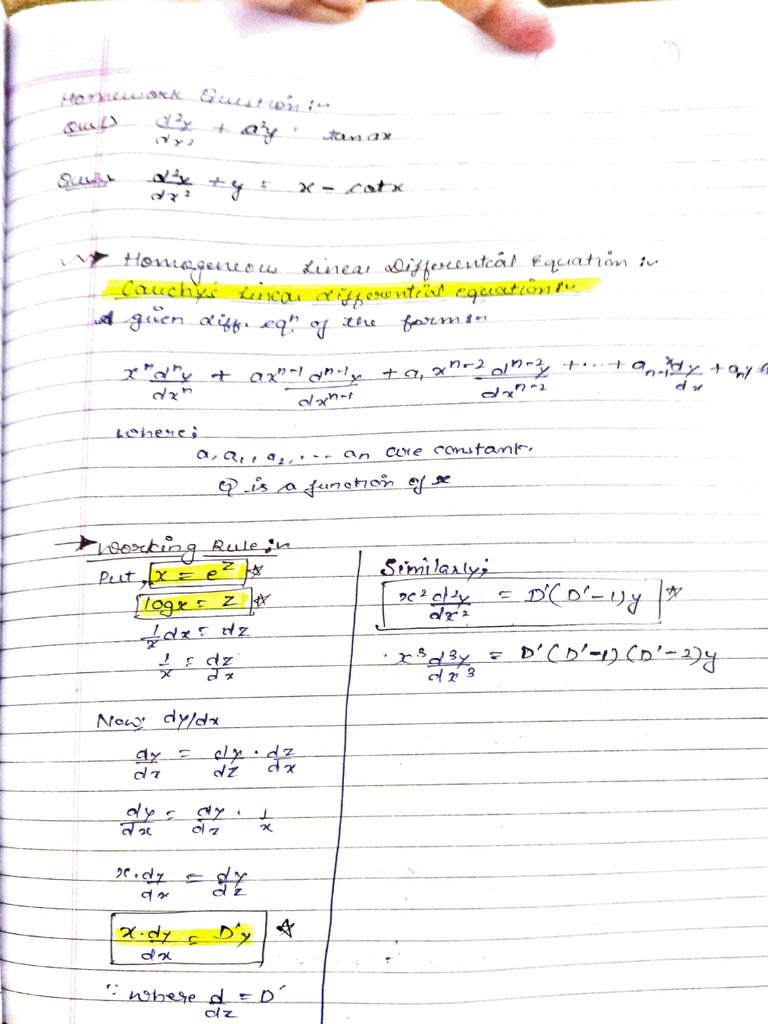 Homework Question:-
Que1) d²y/dx² + a²y = tan ax
Que2. d²y/dx² + y = x - cotx
Homogeneous Linear Differential Equation :-
Cauchy's Linear differential equation:-
A given diff. eqⁿ of the form:-
xⁿ dⁿy/dxⁿ + axⁿ⁻¹ dⁿ⁻¹y/dxⁿ⁻¹ + a₁ xⁿ⁻² dⁿ⁻²y/dxⁿ⁻² + ... + aₙ₋₁ x dy/dx + aₙy
where;
a, a₁, a₂, ... an are constant.
Q is a function of x
→ Working Rule:-
Put, x = e^z ☆
logx = z ☆
1/x dx = dz
1/x = dz/dx
Now: dy/dx
dy/dx = dy/dz · dz/dx
dy/dx = dy/dz · 1/x
x·dy/dx = dy/dz
x·dy/dx = D'y ☆
∵ where d/dz = D'
Similarly;
x² d²y/dx² = D'(D'-1)y ☆
· x³ d³y/dx³ = D'(D'-1)(D'-2)y